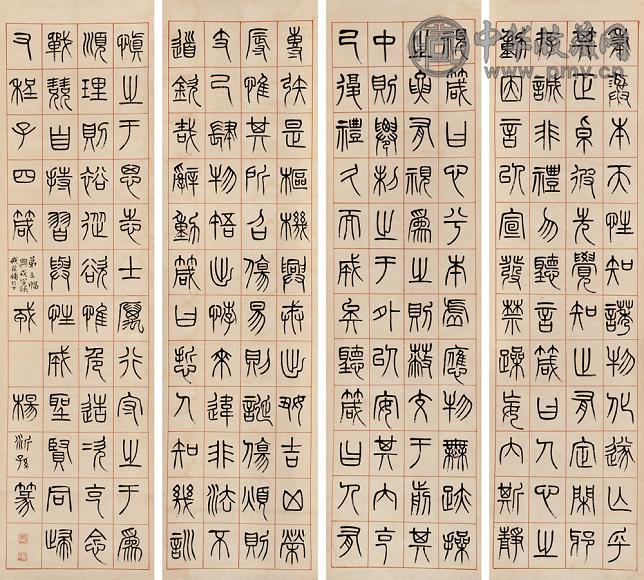 秉彝本天性知誘物化遂亡乎
其正卓彼先覺知止有定閑邪
存誠非禮勿聽言箴曰人心之
動因言以宣發禁躁妄內斯靜
視箴曰心兮本虛應物無跡操
之要有視爲之則蔽交于前其
中則遷制之于外以安其內克
己復禮久而誠矣聽箴曰人有
專矧是樞機興戎出好吉凶榮
辱惟其所召傷易則誕傷煩則
支己肆物忤出悖來違非法不
道欽哉辭動箴曰哲人知幾訓
慎之于思志士厲行守之于爲
順理則裕從欲惟危造次克念
戰兢自持習與性成聖賢同歸
右程子四箴
第三幅
戎
楊沂孫篆
www.pmcv.cn